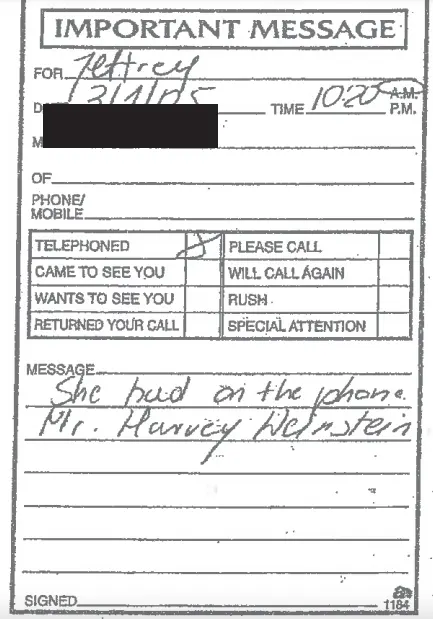 IMPORTANT MESSAGE
FOR Jeffrey
D 3/1/05 TIME 10:20 A.M.
P.M.
M
OF
PHONE/
MOBILE
TELEPHONED PLEASE CALL
CAME TO SEE YOU WILL CALL AGAIN
WANTS TO SEE YOU RUSH
RETURNED YOUR CALL SPECIAL ATTENTION
MESSAGE
She had on the phone.
Mr. Harvey Weinstein
SIGNED 1184